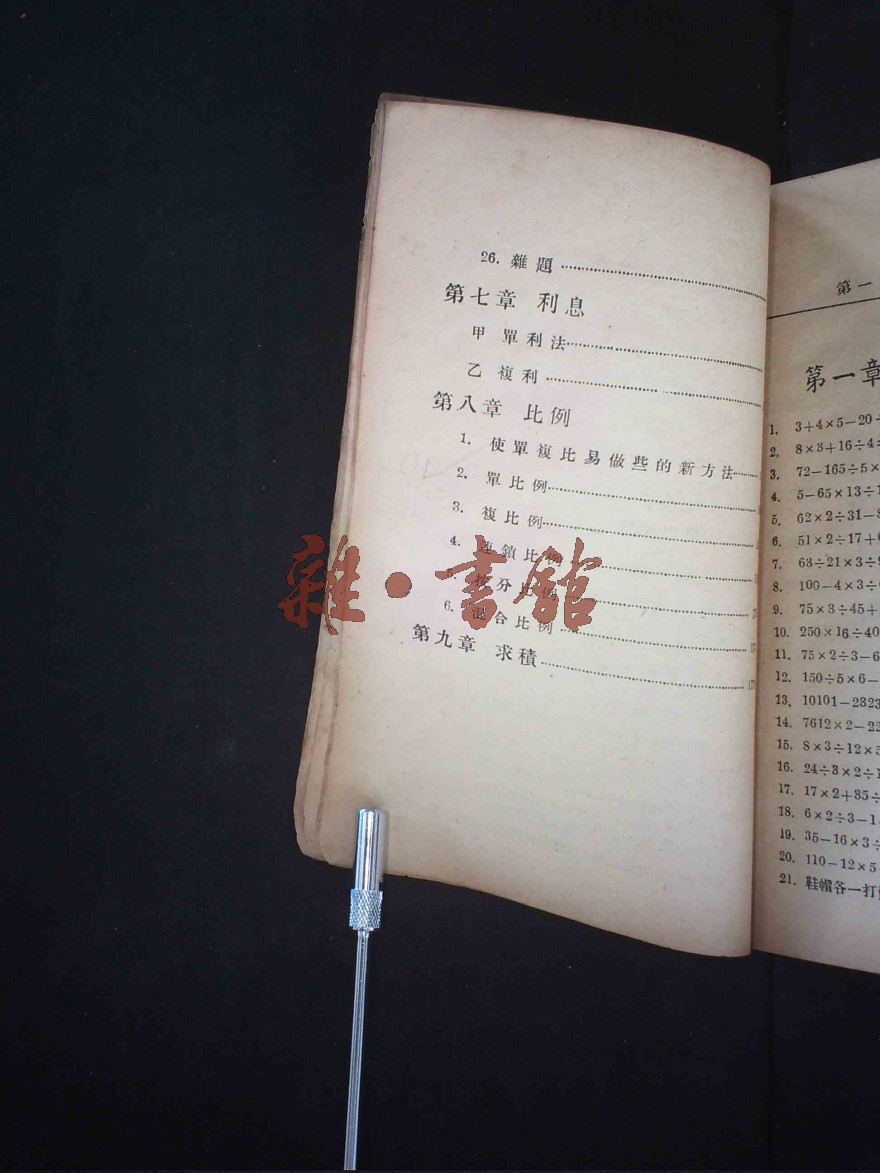 26. 雜題
第七章 利息
甲 單利法
乙 複利
第八章 比例
1. 使單複比易做些的新方法
2. 單比例
3. 複比例
4. 連鎖比例
5. 按分比例
6. 混合比例
第九章 求積
雜·書館
第一
第一章
1. 3+4×5−20÷
2. 8×3+16÷4÷
3. 72−165÷5×
4. 5−65×13÷1
5. 62×2÷31−8
6. 51×2÷17+6
7. 63÷21×3÷9
8. 100−4×3÷
9. 75×3÷45+
10. 250×16÷40
11. 75×2÷3−6
12. 150÷5×6−
13. 10101−2323
14. 7612×2−23
15. 8×3÷12×5
16. 24÷3×2÷1
17. 17×2+35÷
18. 6×2÷3−1
19. 35−16×3÷
20. 110−12×5
21. 鞋帽各一打